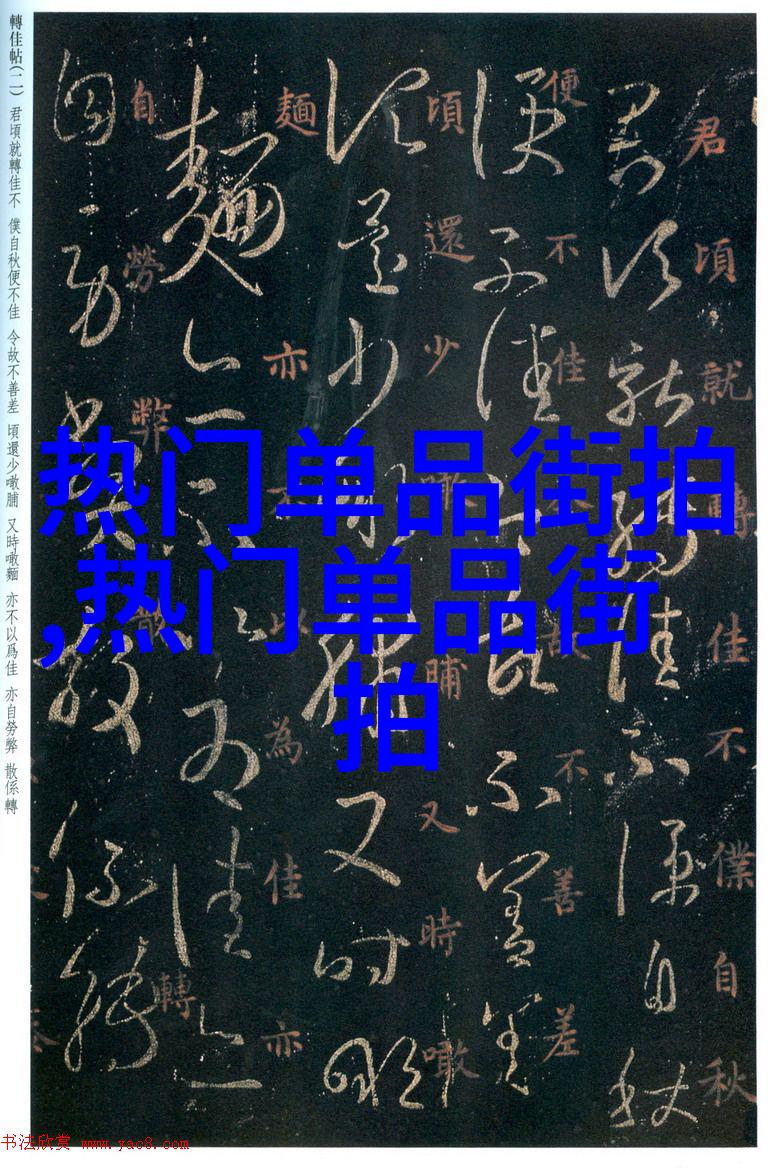 轉佳帖(二) 君頃就轉佳不 僕自秋便不佳 令故不善差 頃還少噉脯 又時噉麵 亦不以爲佳 亦自勞弊 散係轉
君頃就轉佳不僕自秋
便不佳不故不善差
頃還少噉脯又時噉
麵亦不以為佳亦
自勞弊散轉
热门单品街拍
,热门单品街
拍
书法欣赏 www.yac8.com